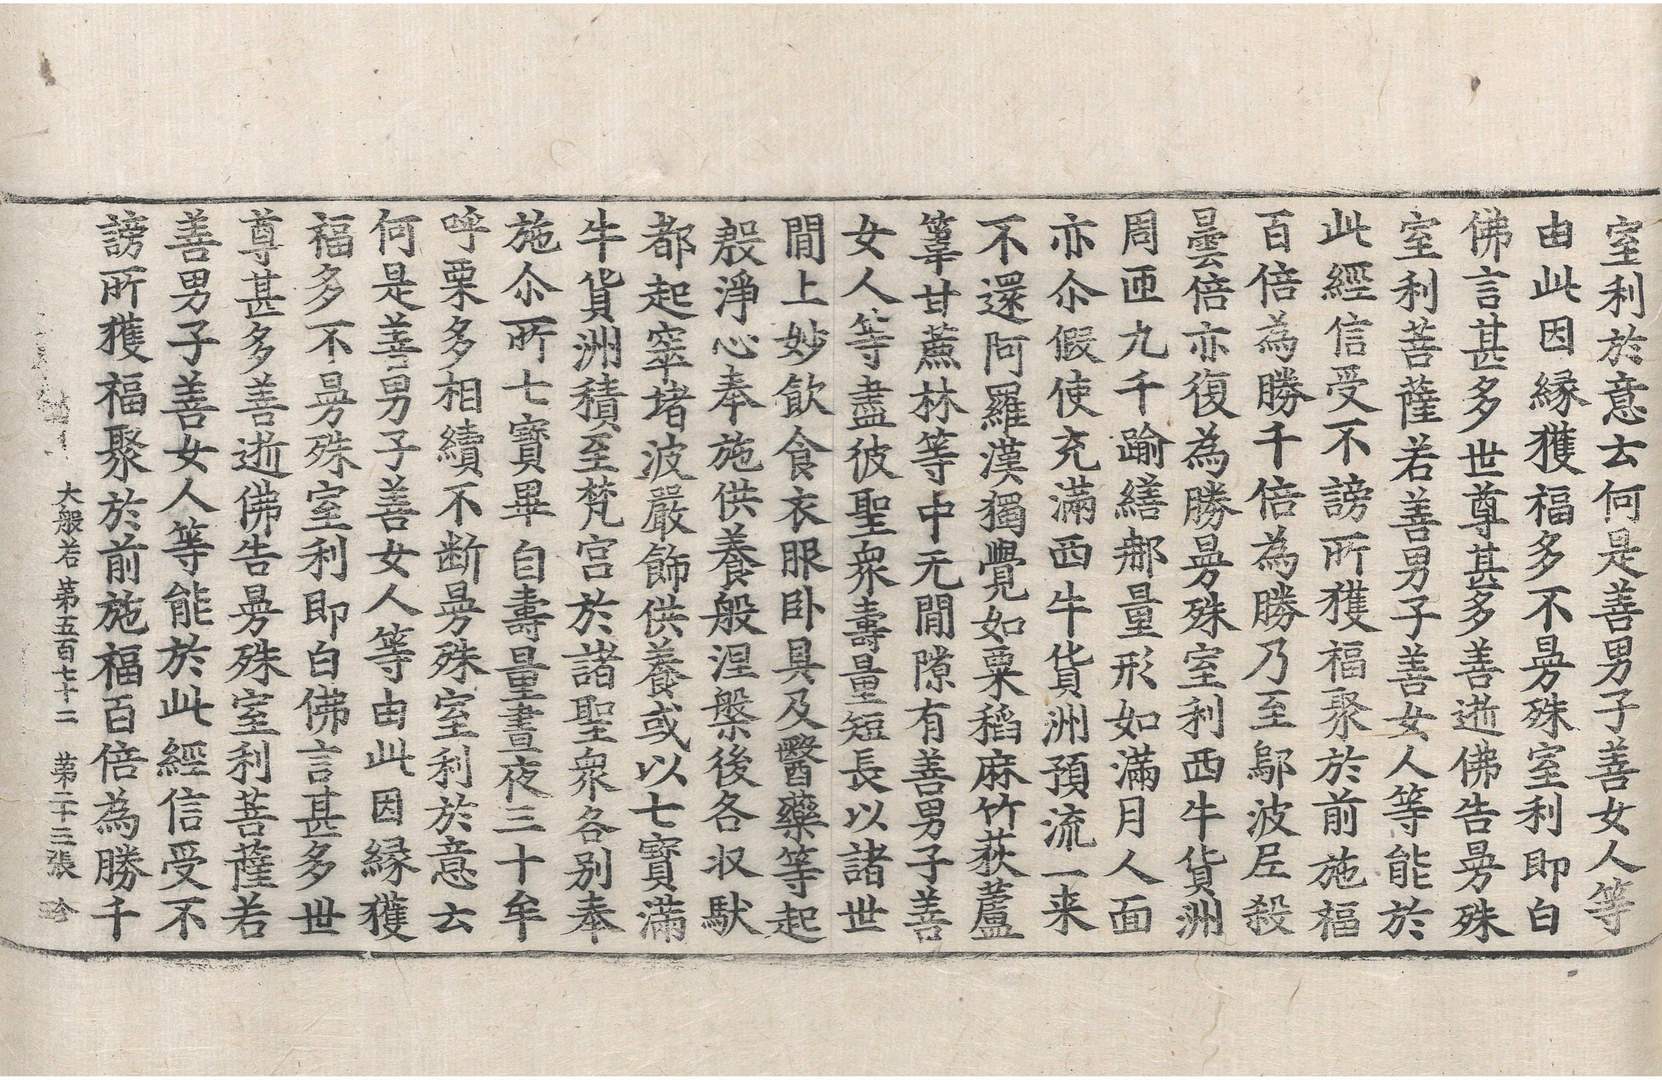 室利於意云何是善男子善女人等
由此因緣獲福多不㬅殊室利即白
佛言甚多世尊甚多善逝佛告㬅殊
室利菩薩若善男子善女人等能於
此經信受不謗所獲福聚於前施福
百倍為勝千倍為勝乃至鄔波尼殺
曇倍亦復為勝㬅殊室利西牛貨洲
周匝九千踰繕那量形如滿月人面
亦尒假使充滿西牛貨洲預流一来
不還阿羅漢獨覺如粟稻麻竹荻蘆
葦甘蔗林等中无間隙有善男子善
女人等盡彼聖衆壽量短長以諸世
間上妙飲食衣服卧具及醫藥等起
殷淨心奉施供養般涅槃後各収馱
都起窣堵波嚴飾供養或以七寶滿
牛貨洲積至梵宮於諸聖衆各別奉
施尒所七寶畢自壽量晝夜三十牟
呼栗多相續不断㬅殊室利於意云
何是善男子善女人等由此因緣獲
福多不㬅殊室利即白佛言甚多世
尊甚多善逝佛告㬅殊室利菩薩若
善男子善女人等能於此經信受不
謗所獲福聚於前施福百倍為勝千
大般若第五百七十二 第二十三張